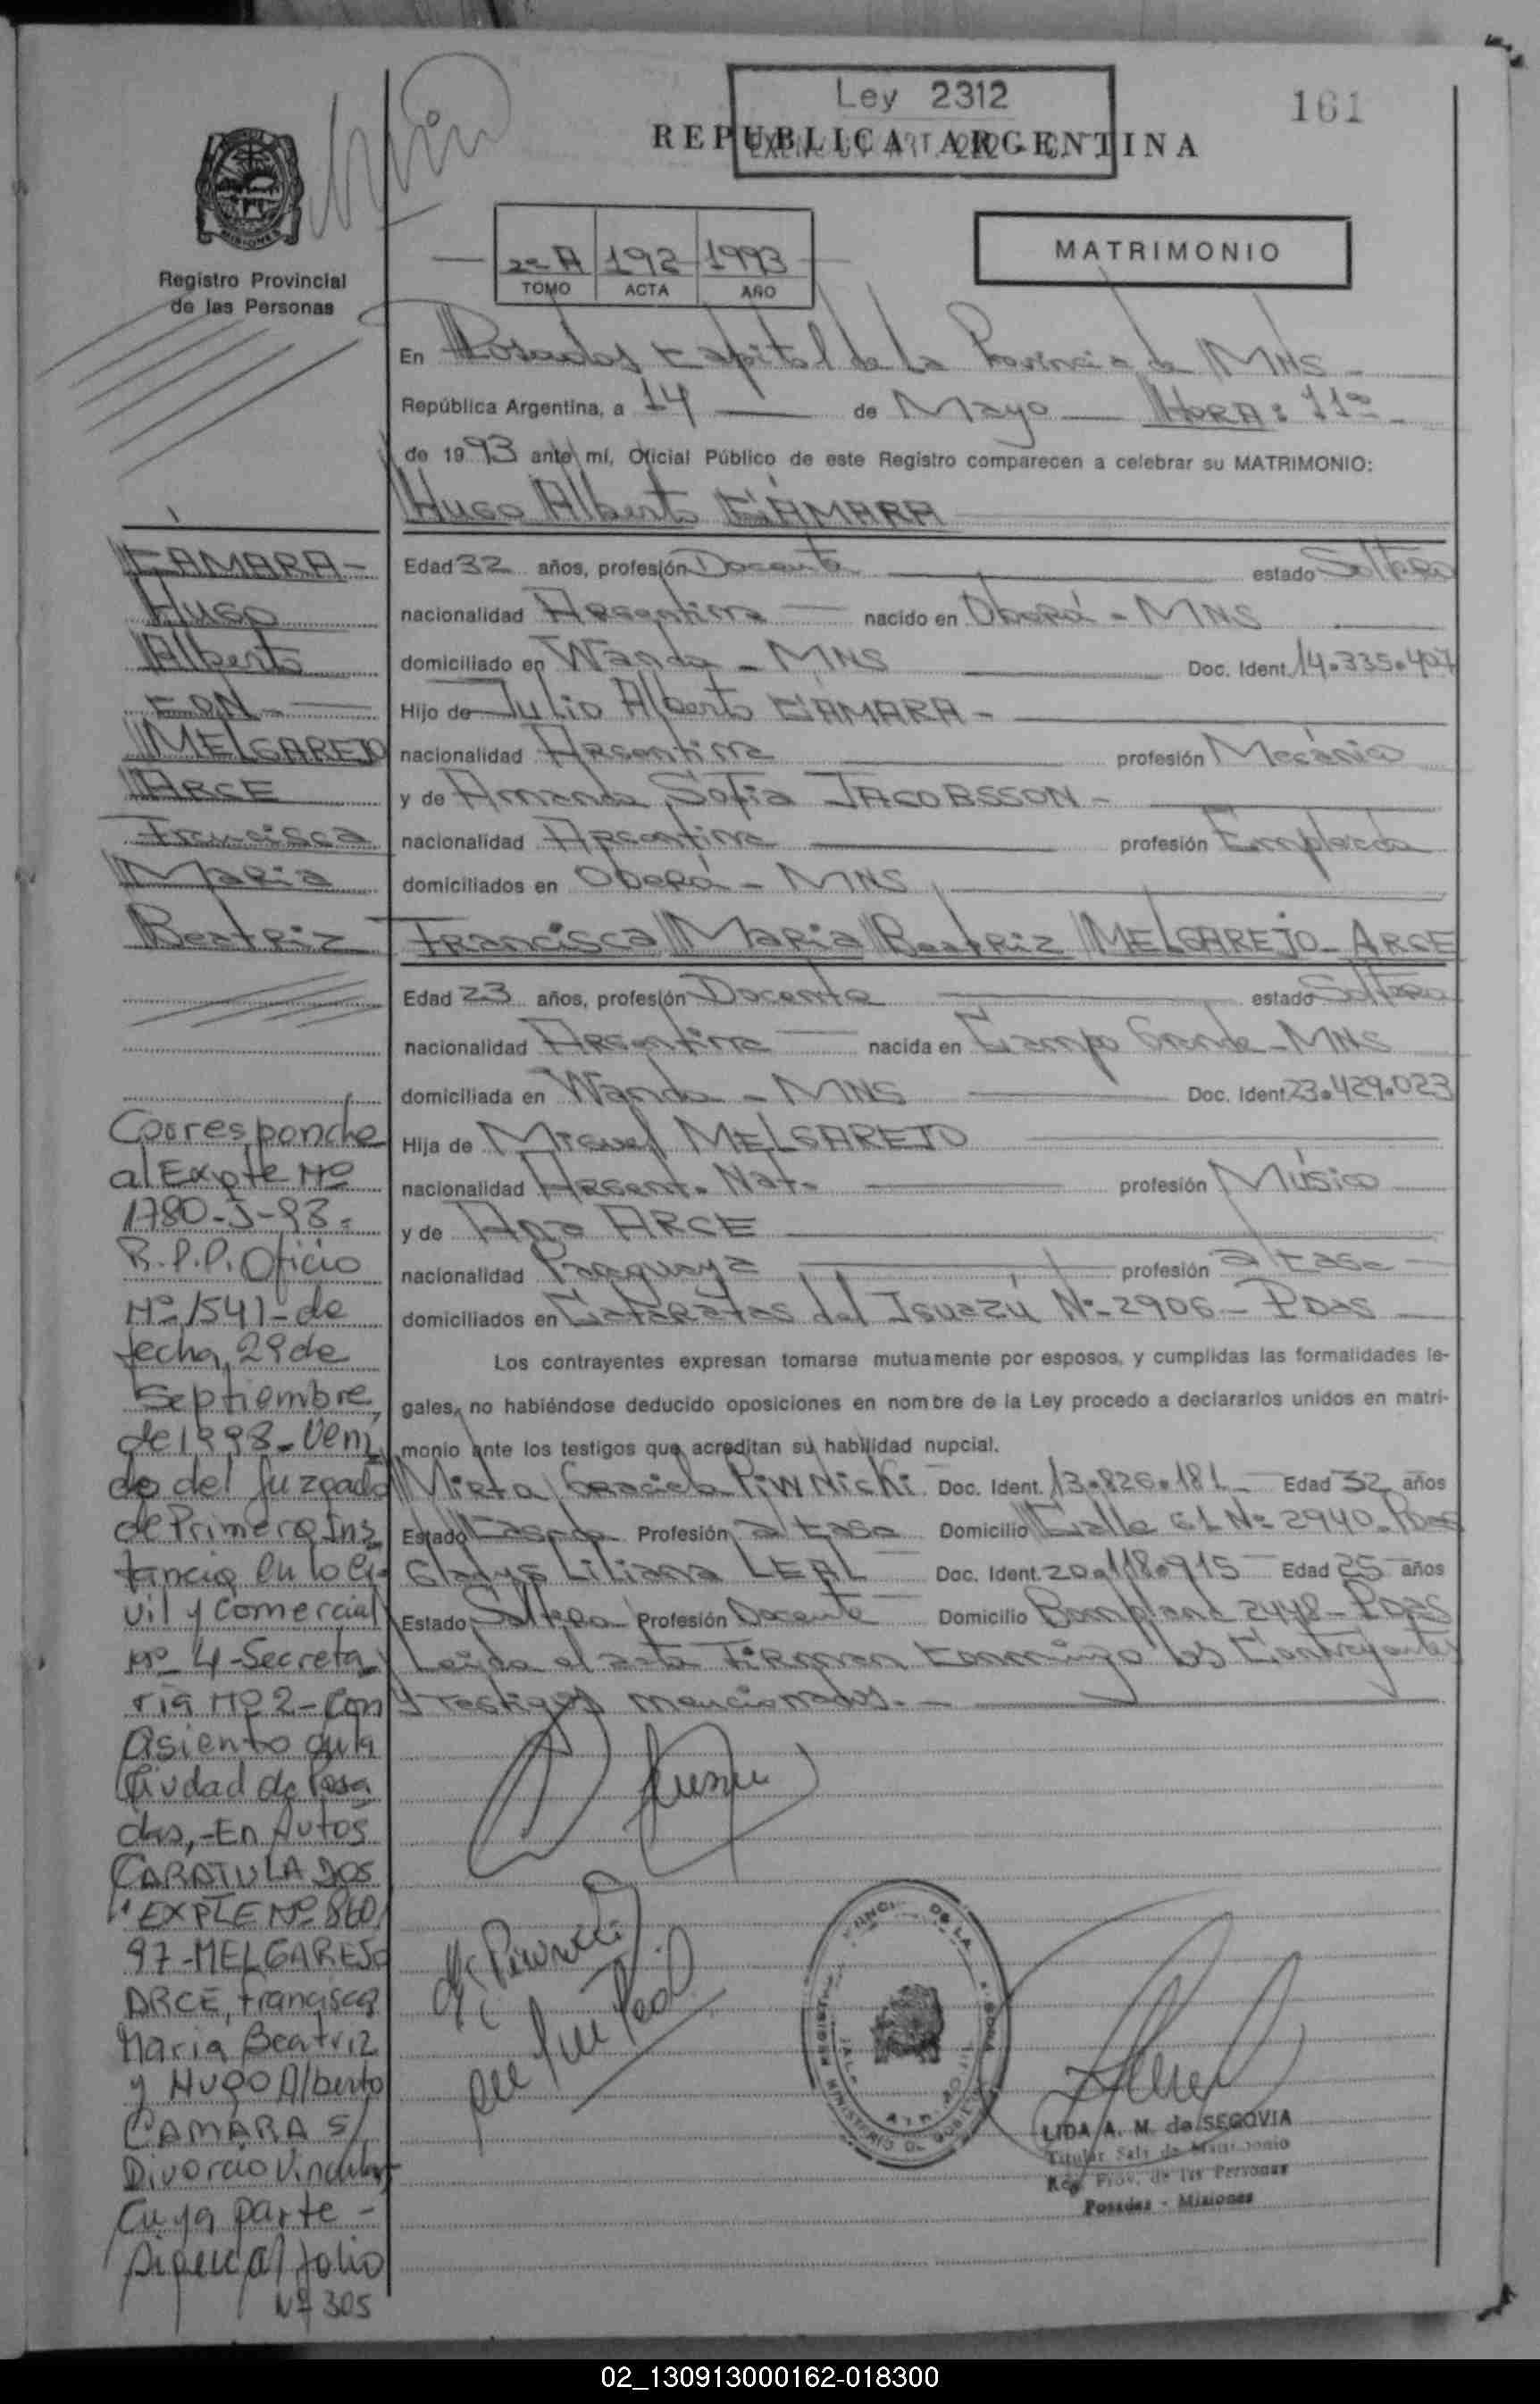 Ley 2312
161
REPUBLICA ARGENTINA
MISIONES
Registro Provincial
de las Personas
2º A 192 1993
TOMO ACTA AÑO
MATRIMONIO
En Posadas Capital de la Provincia de MNS -
República Argentina, a 14 de Mayo HORA: 11º
de 1993 ante mí, Oficial Público de este Registro comparecen a celebrar su MATRIMONIO:
Hugo Alberto CÁMARA
Edad 32 años, profesión Docente estado Soltero
nacionalidad Argentina nacido en Oberá - MNS
domiciliado en Wanda - MNS Doc. Ident. 14.335.407
Hijo de Julio Alberto CÁMARA -
nacionalidad Argentina profesión Mecánico
y de Amanda Sofia JACOBSSON -
nacionalidad Argentina profesión Empleada
domiciliados en Oberá - MNS
Francisca Maria Beatriz MELGAREJO - ARCE
Edad 23 años, profesión Docente estado Soltera
nacionalidad Argentina nacida en Campo Grande - MNS
domiciliada en Wanda - MNS Doc. Ident 23.429.023
Hija de Miguel MELGAREJO
nacionalidad Argent. Nat. profesión Músico
y de Ana ARCE
nacionalidad Praguaya profesión a/ casa
domiciliados en Cataratas del Iguazú Nº 2906 - Pdas
Los contrayentes expresan tomarse mutuamente por esposos, y cumplidas las formalidades le-
gales, no habiéndose deducido oposiciones en nombre de la Ley procedo a declararlos unidos en matri-
monio ante los testigos que acreditan su habilidad nupcial.
Mirta Graciela Piwnicki Doc. Ident. 13.826.181 Edad 32 años
Estado Casada Profesión a/ casa Domicilio Calle 61 Nº 2940 - Pdas
Gladys Liliana LEAL Doc. Ident. 20.118.915 Edad 25 años
Estado Soltera Profesión Docente Domicilio Bompland 2448 - Pdas
Leida el acta Firman conmigo los Contrayentes
y testigos mencionados. -
CAMARA -
Hugo
Alberto
CON -
MELGAREJO
ARCE
Francisca
Maria
Beatriz
Corresponde
al Expte Nº
1780-J-98 -
R.P.P. Oficio
Nº 1541 - de
fecha, 29 de
Septiembre,
de 1998 - Veni
do del Juzgado
de Primera Ins
tancia en lo Ci-
vil y Comercial
Nº 4 - Secreta
ria Nº 2 - Con
asiento en la
Ciudad de Posa
das, - En Autos
CARATULADOS
"EXPTE Nº 860/
97 - MELGAREJO
ARCE, Francisca
Maria Beatriz
y Hugo Alberto
CAMARA S/
Divorcio Vincular
Cuya parte -
sigue al folio
Nº 305
LIDA A. M. de SEGOVIA
Titular Sala de Matrimonio
Reg. Prov. de las Personas
Posadas - Misiones
02_130913000162-018300